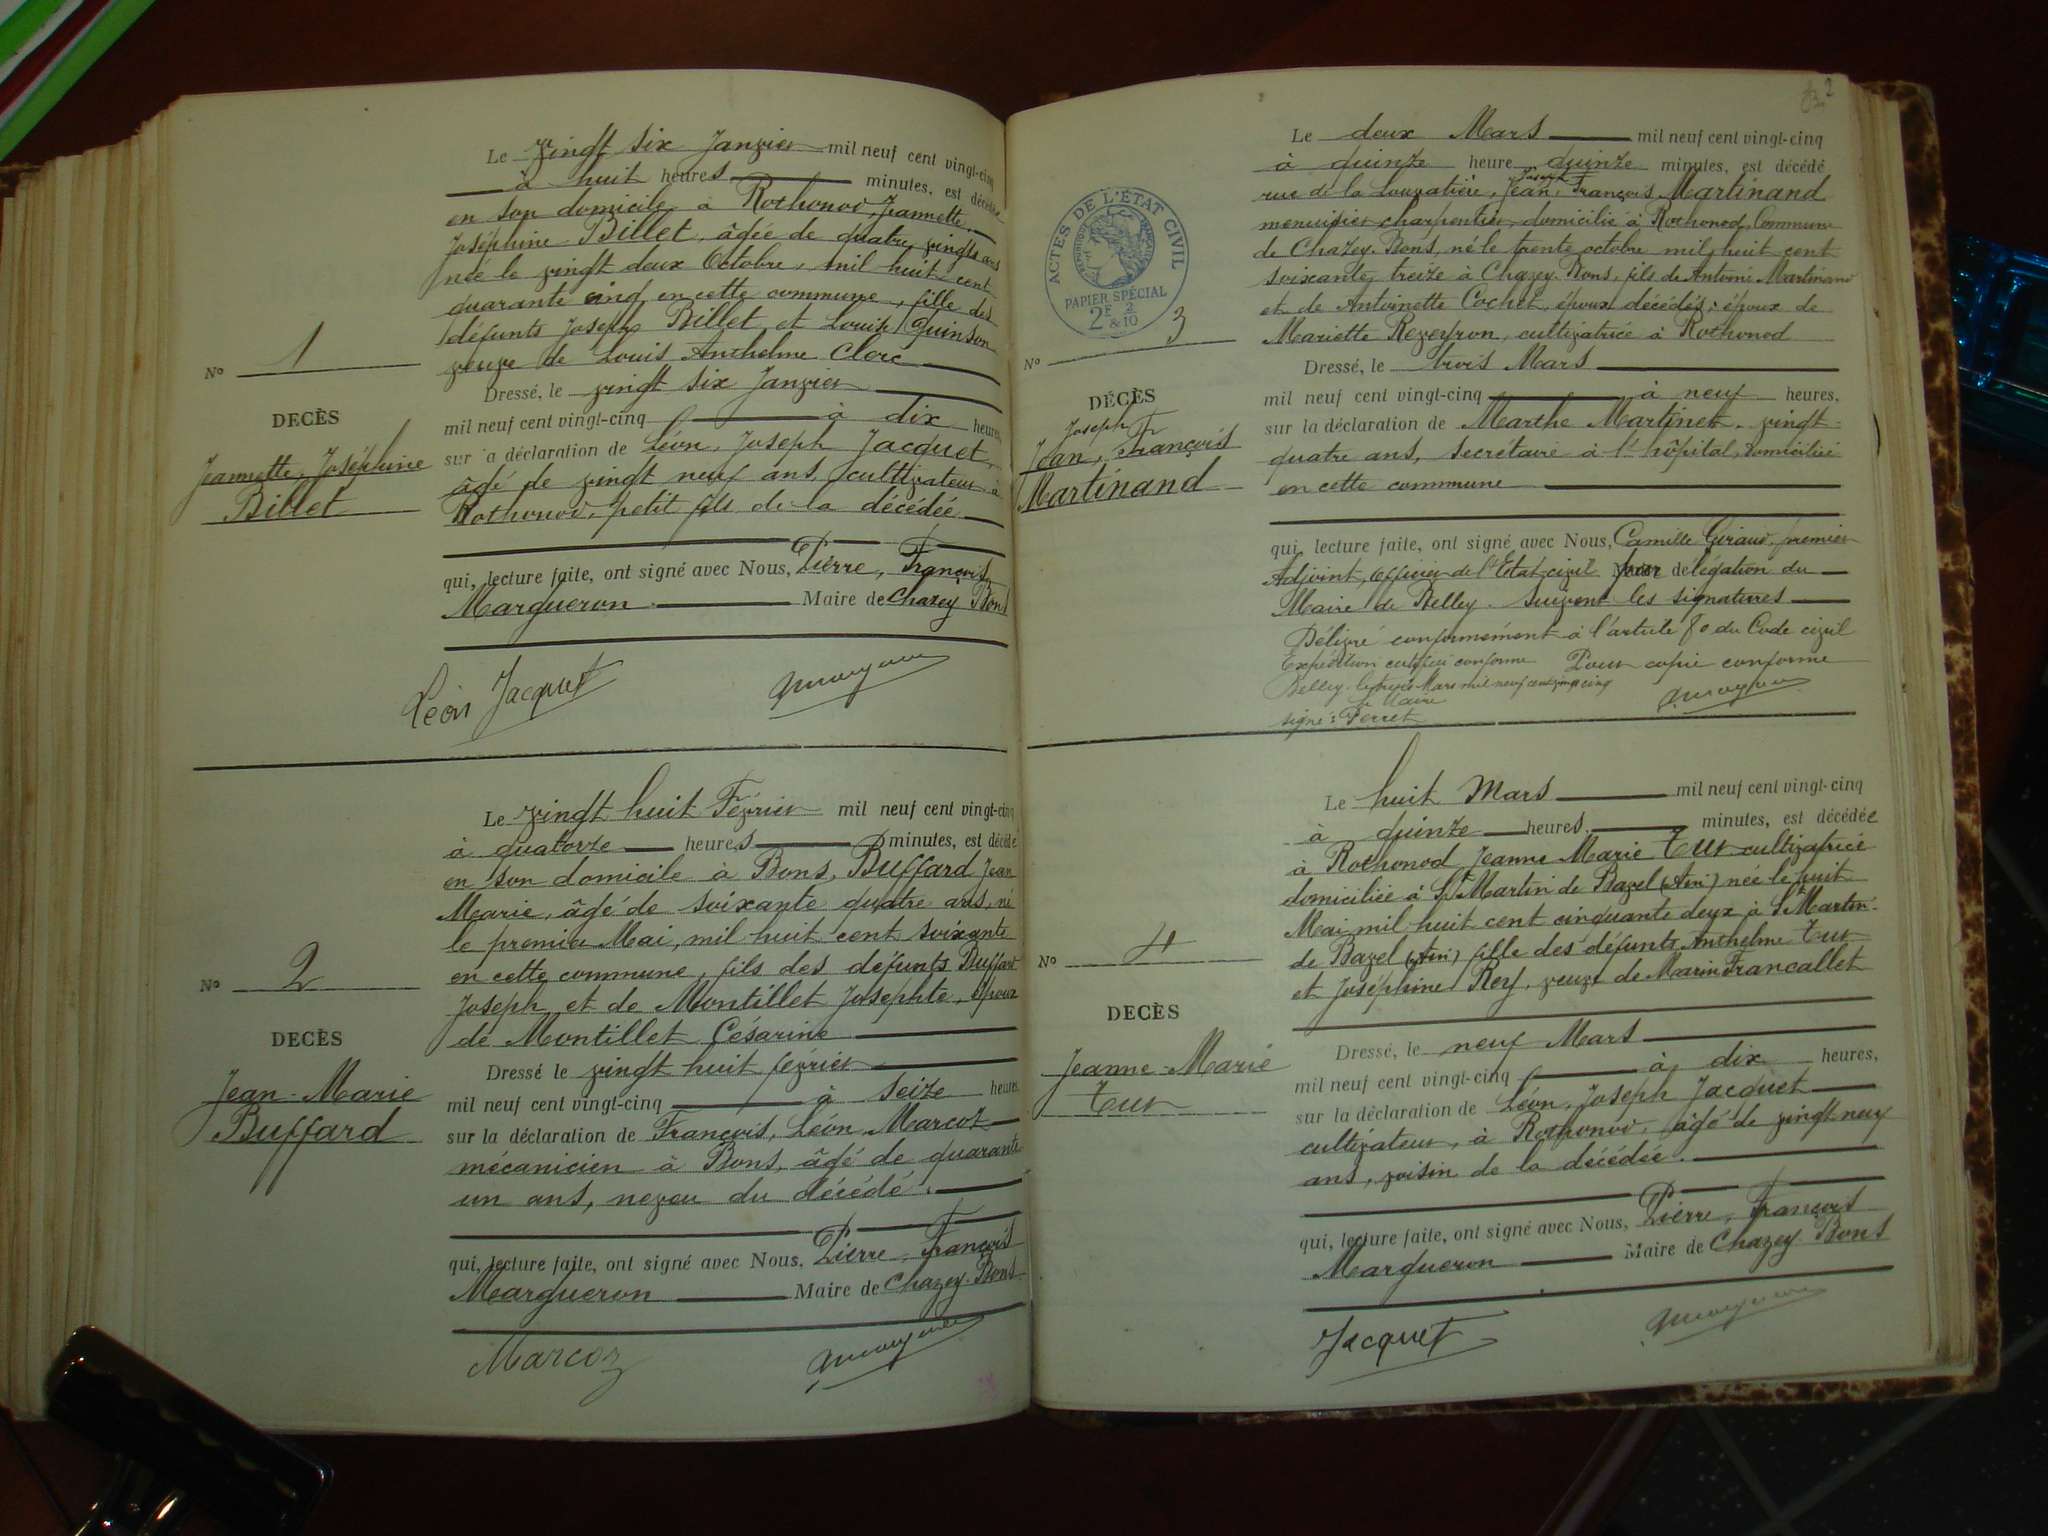 Le vingt six Janvier mil neuf cent vingt-cinq
à huit heures minutes, est décédée
en son domicile à Rothonod, Jeannette,
Joséphine Billet, âgée de quatre vingts ans
née le vingt deux Octobre, mil huit cent
quarante cinq en cette commune, fille des
défunts Joseph Billet et Louise Quinson
veuve de Louis Anthelme Clerc
Dressé, le vingt six Janvier
mil neuf cent vingt-cinq à dix heures,
sur la déclaration de Léon, Joseph Jacquet,
âgé de vingt neuf ans, cultivateur à
Rothonod, petit fils de la décédée
qui, lecture faite, ont signé avec Nous, Pierre, François
Margueron Maire de Chazey Bons
Léon Jacquet
No 1
DECÈS
Jeannette, Joséphine
Billet
Le vingt huit Février mil neuf cent vingt-cinq
à quatorze heures minutes, est décédé
en son domicile à Bons, Buffard Jean
Marie, âgé de soixante quatre ans, né
le premier Mai, mil huit cent soixante
en cette commune, fils des défunts Buffard
Joseph et de Montillet Josephte, époux
de Montillet Césarine
Dressé le vingt huit février
mil neuf cent vingt-cinq à seize heures
sur la déclaration de François, Léon Marcoz
mécanicien à Bons, âgé de quarante
un ans, neveu du décédé.
qui, lecture faite, ont signé avec Nous, Pierre, François
Margueron Maire de Chazey-Bons
Marcoz
No 2
DECÈS
Jean-Marie
Buffard
2
Le deux Mars mil neuf cent vingt-cinq
à quinze heure quinze minutes, est décédé
rue de la Louvatière, Jean, Joseph François Martinand
menuisier charpentier, domicilié à Rothonod, Commune
de Chazey-Bons, né le trente octobre mil huit cent
soixante treize à Chazey-Bons, fils de Antoine Martinand
et de Antoinette Cochet, époux décédés; époux de
Mariette Reveyron, cultivatrice à Rothonod
Dressé, le trois Mars
mil neuf cent vingt-cinq à neuf heures,
sur la déclaration de Marthe Martinet, vingt-
quatre ans, secrétaire à l'hôpital, domiciliée
en cette commune
qui, lecture faite, ont signé avec Nous, Camille Giraud, premier
Adjoint, officier de l'Etat civil par délégation du
Maire de Belley. Suivent les signatures
Délivré conformément à l'article 80 du Code civil
Expédition certifiée conforme Pour copie conforme
Belley, le trois Mars mil neuf cent vingt cinq
le Maire
signé: Perret
ACTES DE L'ÉTAT CIVIL
PAPIER SPÉCIAL
2F 2/10
& 10
No 3
DÉCÈS
Joseph
Jean, François
Martinand
Le huit Mars mil neuf cent vingt-cinq
à quinze heures minutes, est décédée
à Rothonod Jeanne Marie Tur cultivatrice
domiciliée à St Martin de Bavel (Ain) née le huit
Mai mil huit cent cinquante deux à St Martin-
de Bavel (Ain) fille des défunts Anthelme Tur
et Joséphine Rey, veuve de Marin Francallet
Dressé, le neuf Mars
mil neuf cent vingt-cinq à dix heures,
sur la déclaration de Léon, Joseph Jacquet
cultivateur, à Rothonod, âgé de vingt neuf
ans, voisin de la décédée.
qui, lecture faite, ont signé avec Nous, Pierre, François
Margueron Maire de Chazey Bons
Jacquet
No 4
DECÈS
Jeanne-Marie
Tur